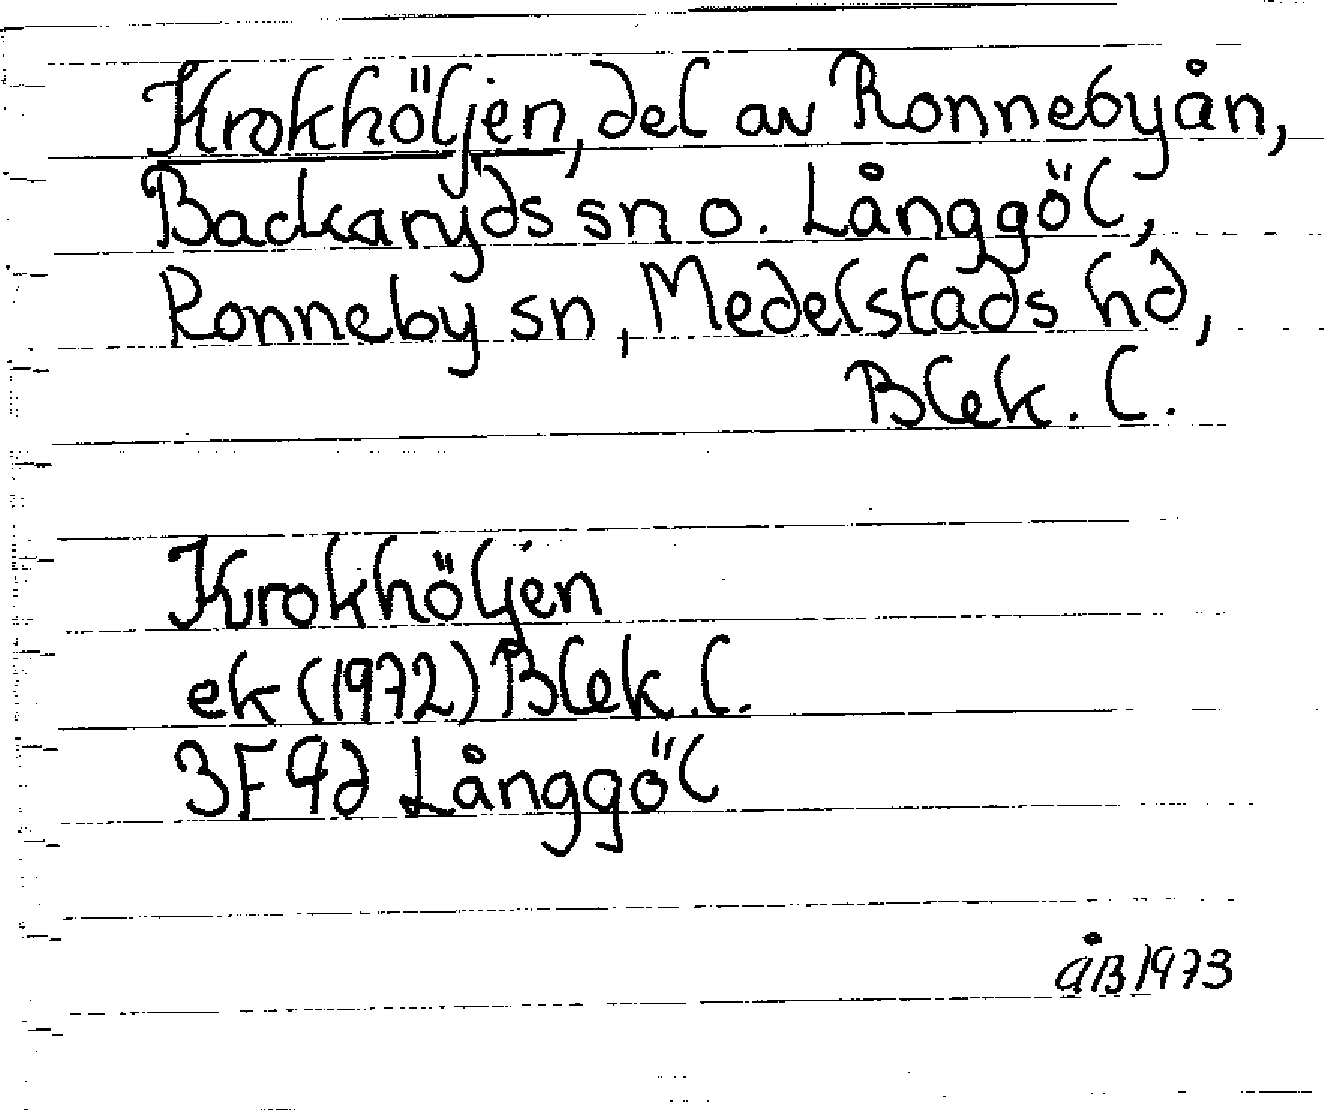 Krokhöljen, del av Ronnebyån,
Backaryds sn o. Långgöl,
Ronneby sn, Medelstads hd,
Blek. l.
Krokhöljen
ek (1972) Blek. l.
3F9d Långgöl
ÅB 1973